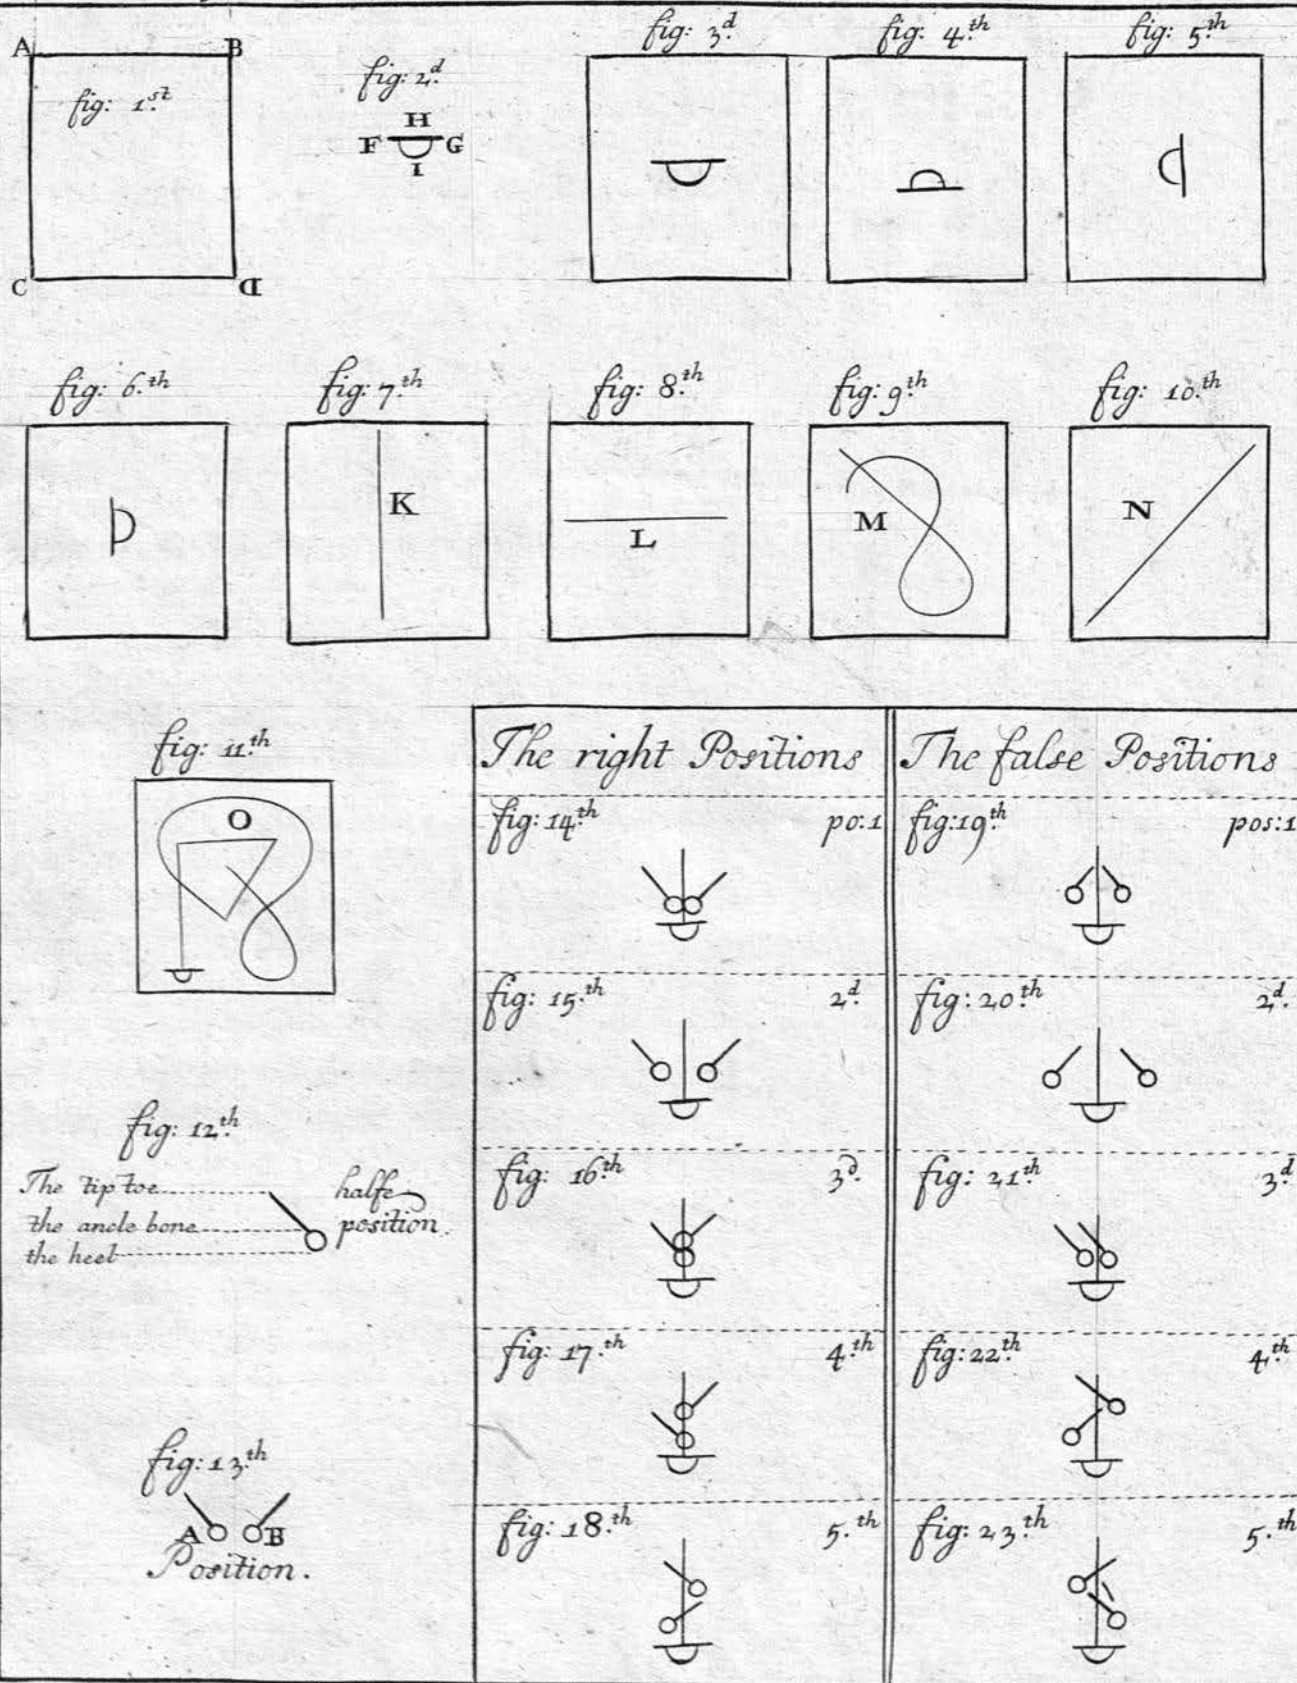 A B
fig: 1.st
C D
fig: 2.d
H
F G
I
fig: 3.d
fig: 4.th
fig: 5.th
fig: 6.th
fig: 7.th
K
fig: 8.th
L
fig: 9.th
M
fig: 10.th
N
fig: 11.th
O
fig: 12.th
The tip toe
the ancle bone
the heel
halfe
position.
fig: 13.th
A B
Position.
The right Positions
fig: 14.th po:1
fig: 15.th 2.d
fig: 16.th 3.d
fig: 17.th 4.th
fig: 18.th 5.th
The false Positions
fig: 19.th pos:1
fig: 20.th 2.d
fig: 21.th 3.d
fig: 22.th 4.th
fig: 23.th 5.th